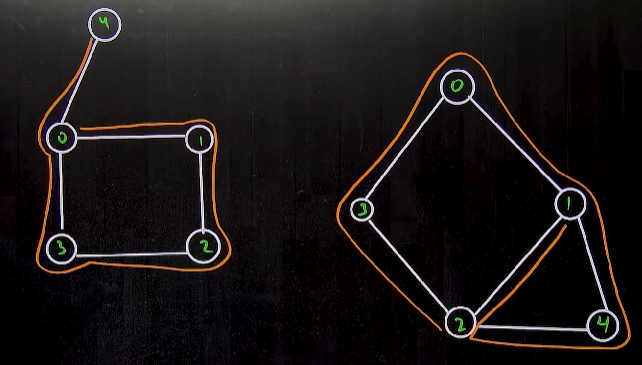 4
0
1
3
2
0
3
1
2
4